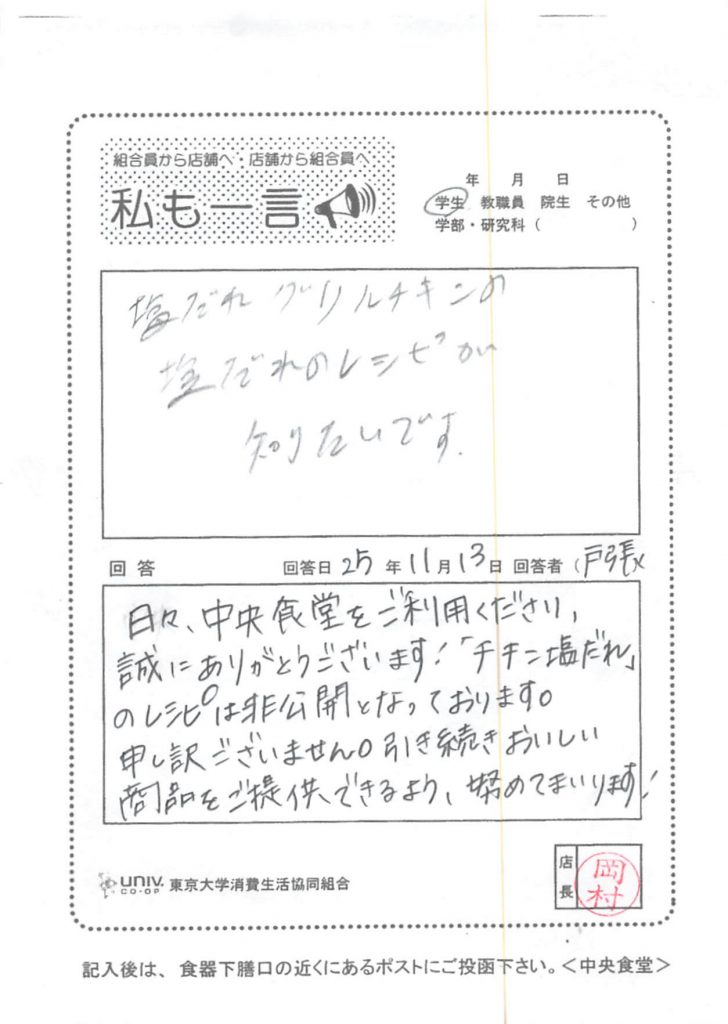 組合員から店舗へ・店舗から組合員へ
私も一言
年 月 日
学生 教職員 院生 その他
学部・研究科（ ）
塩だれグリルチキンの
塩だれのレシピが
知りたいです.
回答 回答日 25 年 11 月 13 日 回答者（戸張
日々、中央食堂をご利用くださり、
誠にありがとうございます!「チキン塩だれ」
のレシピは非公開となっております。
申し訳ございません。引き続きおいしい
商品をご提供できるよう、努めてまいります!
UNIV. CO-OP 東京大学消費生活協同組合
店長 岡村
記入後は、食器下膳口の近くにあるポストにご投函下さい。＜中央食堂＞